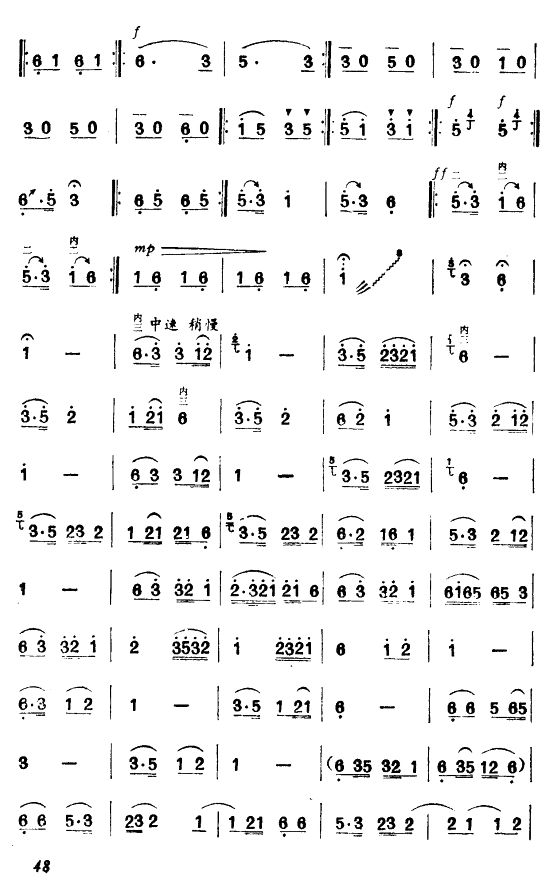 f
6 1 6 1 6· 3 5· 3 3 0 5 0 3 0 1 0
f f
3 0 5 0 3 0 6 0 1 5 3 5 5 1 3 1 5 5
ff 二 内二
6·5 3 6 5 6 5 5·3 1 5·3 6 5·3 1 6
二 内二 mp
5·3 1 6 1 6 1 6 1 6 1 6 1 3 6
内三 中速 稍慢 内三
1 — 6·3 3 12 1 — 3·5 2321 6 —
内三
3·5 2 1 21 6 3·5 2 6 2 1 5·3 2 12
1 — 6 3 3 12 1 — 3·5 2321 6 —
3·5 23 2 1 21 21 6 3·5 23 2 6·2 16 1 5·3 2 12
1 — 6 3 32 1 2·321 21 6 6 3 32 1 6165 65 3
6 3 32 1 2 3532 1 2321 6 1 2 1 —
6·3 1 2 1 — 3·5 1 21 6 — 6 6 5 65
3 — 3·5 1 2 1 — (6 35 32 1 6 35 12 6)
6 6 5·3 23 2 1 1 21 6 6 5·3 23 2 2 1 1 2
48